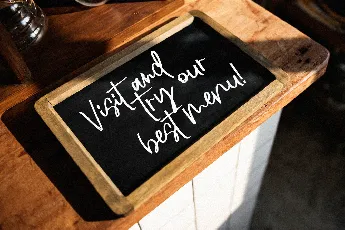 Visit and
try our
best menu!